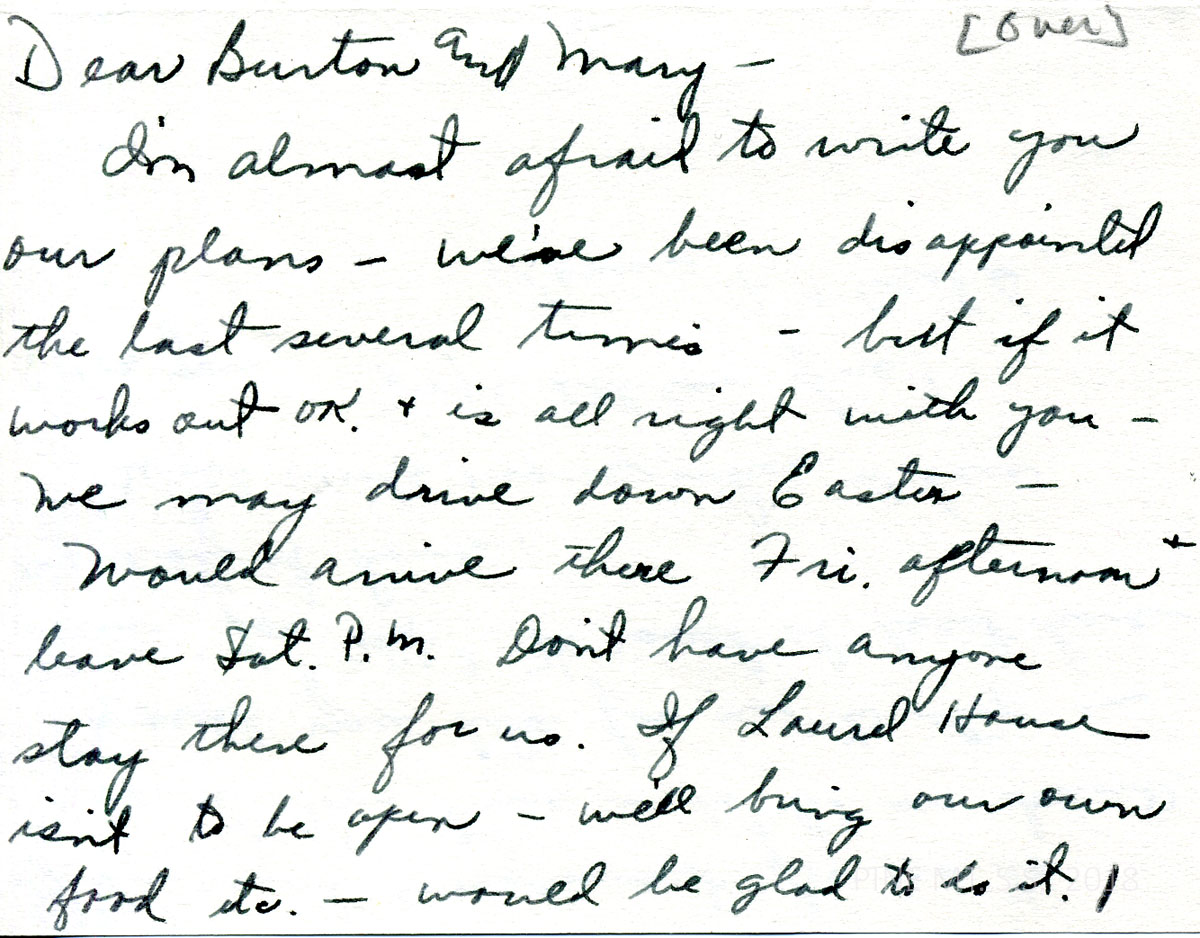 [over]
Dear Burton and Mary –
I'm almost afraid to write you
our plans – we've been disappointed
the last several times – but if it
works out OK. + is all right with you –
We may drive down Easter –
Would arrive there Fri. afternoon +
leave Sat. P.M. Don't have anyone
stay there for us. If Laurel House
isn't to be open – we'll bring our own
food etc. – would be glad to do it. /